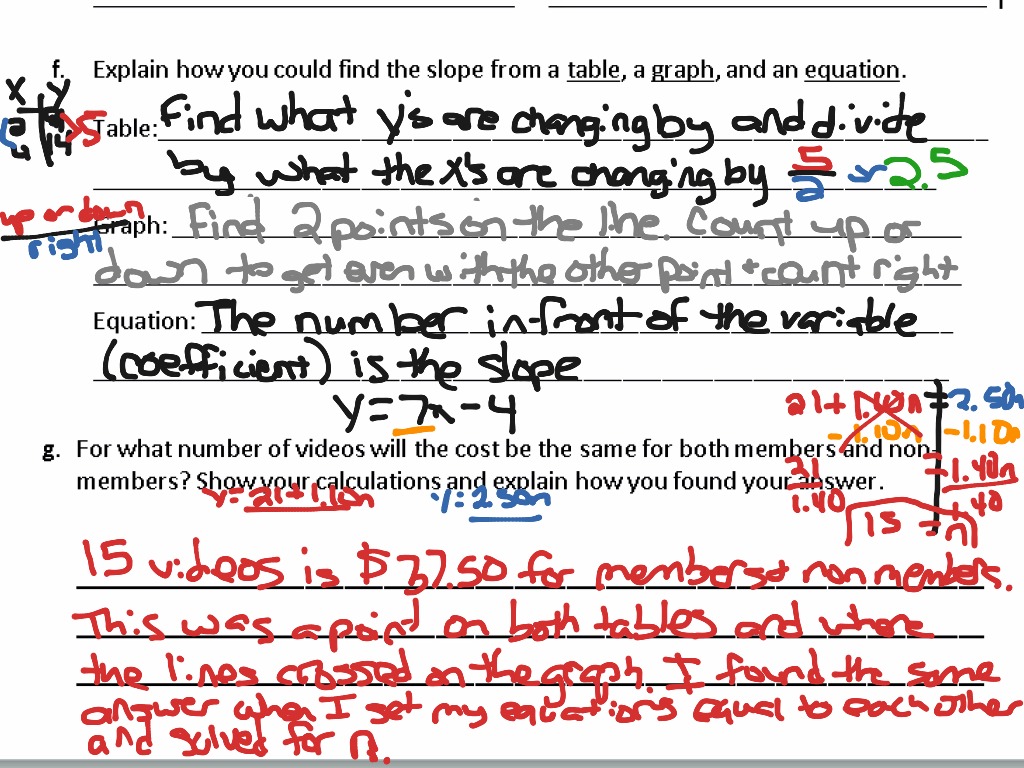 f. Explain how you could find the slope from a table, a graph, and an equation.
x y
2 9
4 14
>5
Table: Find what y's are changing by and divide
by what the x's are changing by 5/2 2.5
up or down
right
Graph: Find 2 points on the line. Count up or
down to get even with the other point + count right
Equation: The number in front of the variable
(coefficient) is the slope
y = 7x - 4
21 + 1.10n = 2.50n
- 1.10n - 1.10n
g. For what number of videos will the cost be the same for both members and non-
members? Show your calculations and explain how you found your answer.
21 = 1.40n
1.40 1.40
y = 21 + 1.10n y = 2.50n
15 = n
15 videos is $37.50 for members + non members.
This was a point on both tables and where
the lines crossed on the graph. I found the same
answer when I set my equations equal to each other
and solved for n.